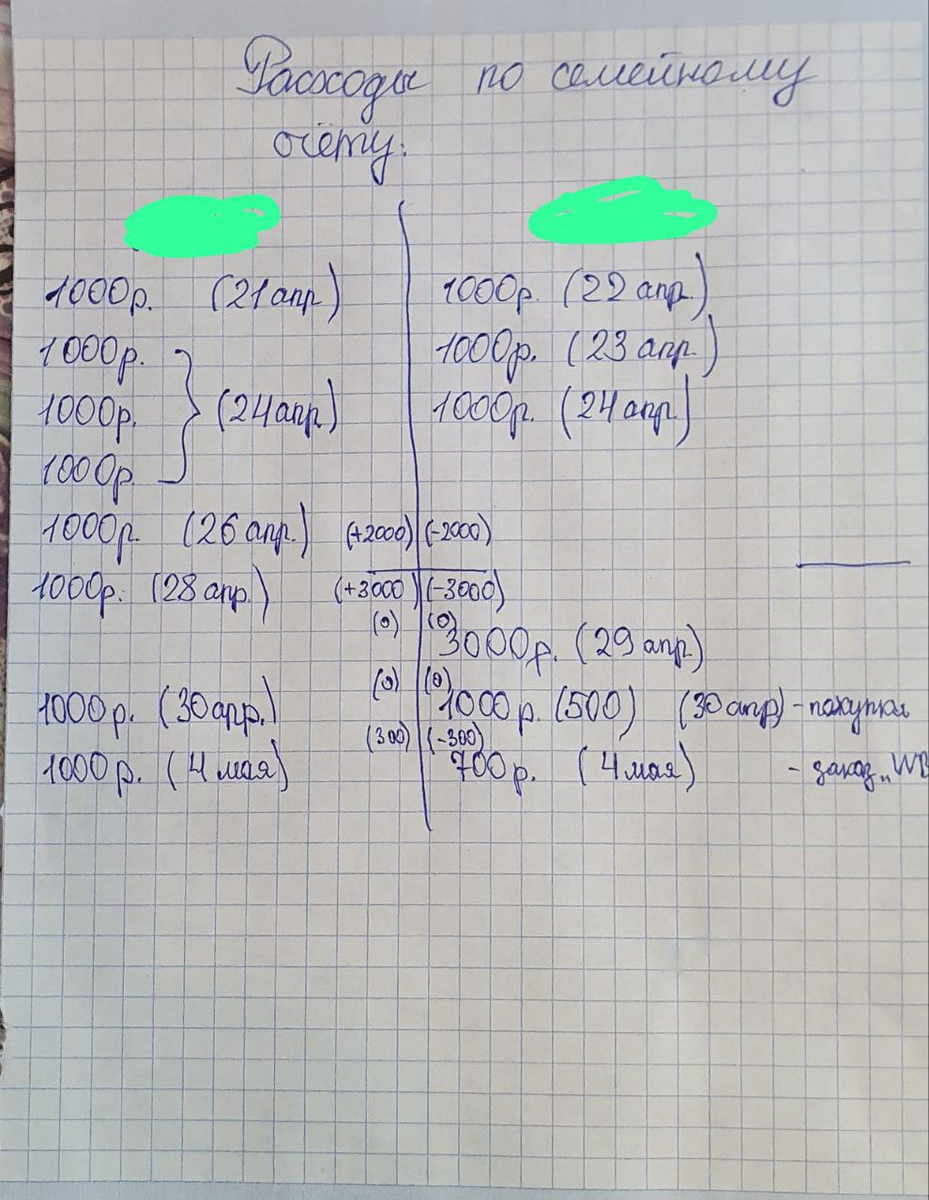 Расходы по семейному
счёту:
1000р. (21 апр) 1000р. (22 апр.)
1000р. 1000р. (23 апр.)
1000р. (24 апр) 1000р. (24 апр)
1000р.
1000р. (26 апр.) (+2000) (-2000)
1000р. (28 апр.) (+3000) (-3000)
(0) (0)
3000р. (29 апр)
(0) (0)
1000р. (30 апр.) 1000р. (500) (30 апр) - покупки
(300) (-300)
1000р. (4 мая) 700р. (4 мая) - заказ „WB